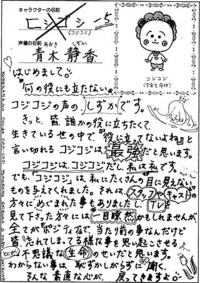 キャラクターの名前
コジコジ
(コジコジ)
声優の名前
あおき しずか
青木 静香
コジコジ
はじめまして
"何の役にも立たない"
コジコジの声の、しずかです。
きっと、皆、誰かの役に立ちたくて、
生きている世の中で"役に立ってないよね"と
言い切れるコジコジは最強だと思います。
コジコジはコジコジだし、私は私です。
でも、"コジコジ"は、私にたくさんの目に見えない
ものを与えてくれました。それは、スタッフやキャストの
方々にめぐまれた事もありましたし、TVを
見て下さった方々には一目瞭然かもしれませんが、
全てがポジティブで、当たり前の事なんだけど
皆、忘れてしまってる様な事を思い起こさせる
不思議な生命のせいだと思います。
わからない事は、恥ずかしがらずに聞く、
そんな素直な心が、戻ってきますよ